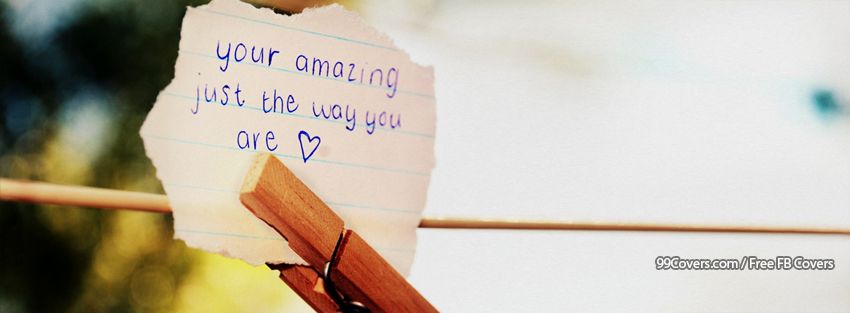 your amazing
just the way you
are ♡
99Covers.com / Free FB Covers